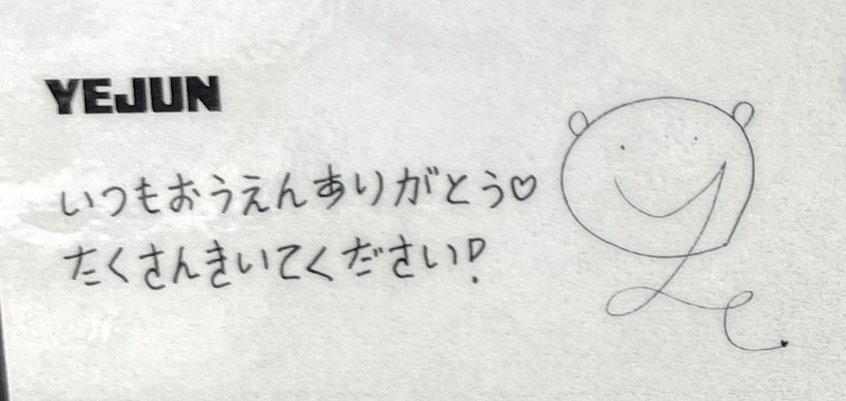 YEJUN
いつもおうえんありがとう♡
たくさんきいてください!